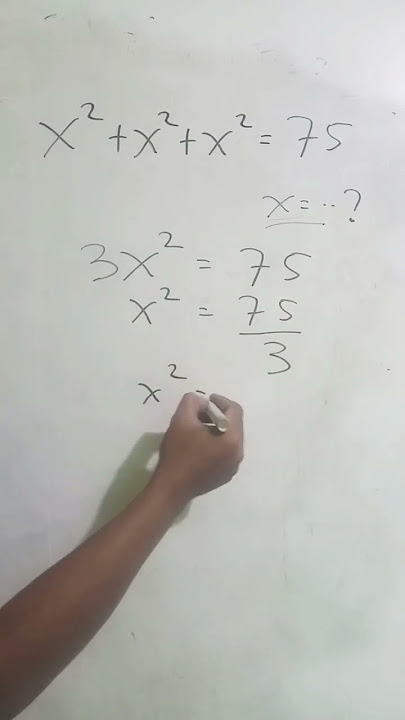 x² + x² + x² = 75
x = ..?
3x² = 75
x² = 75/3
x² =